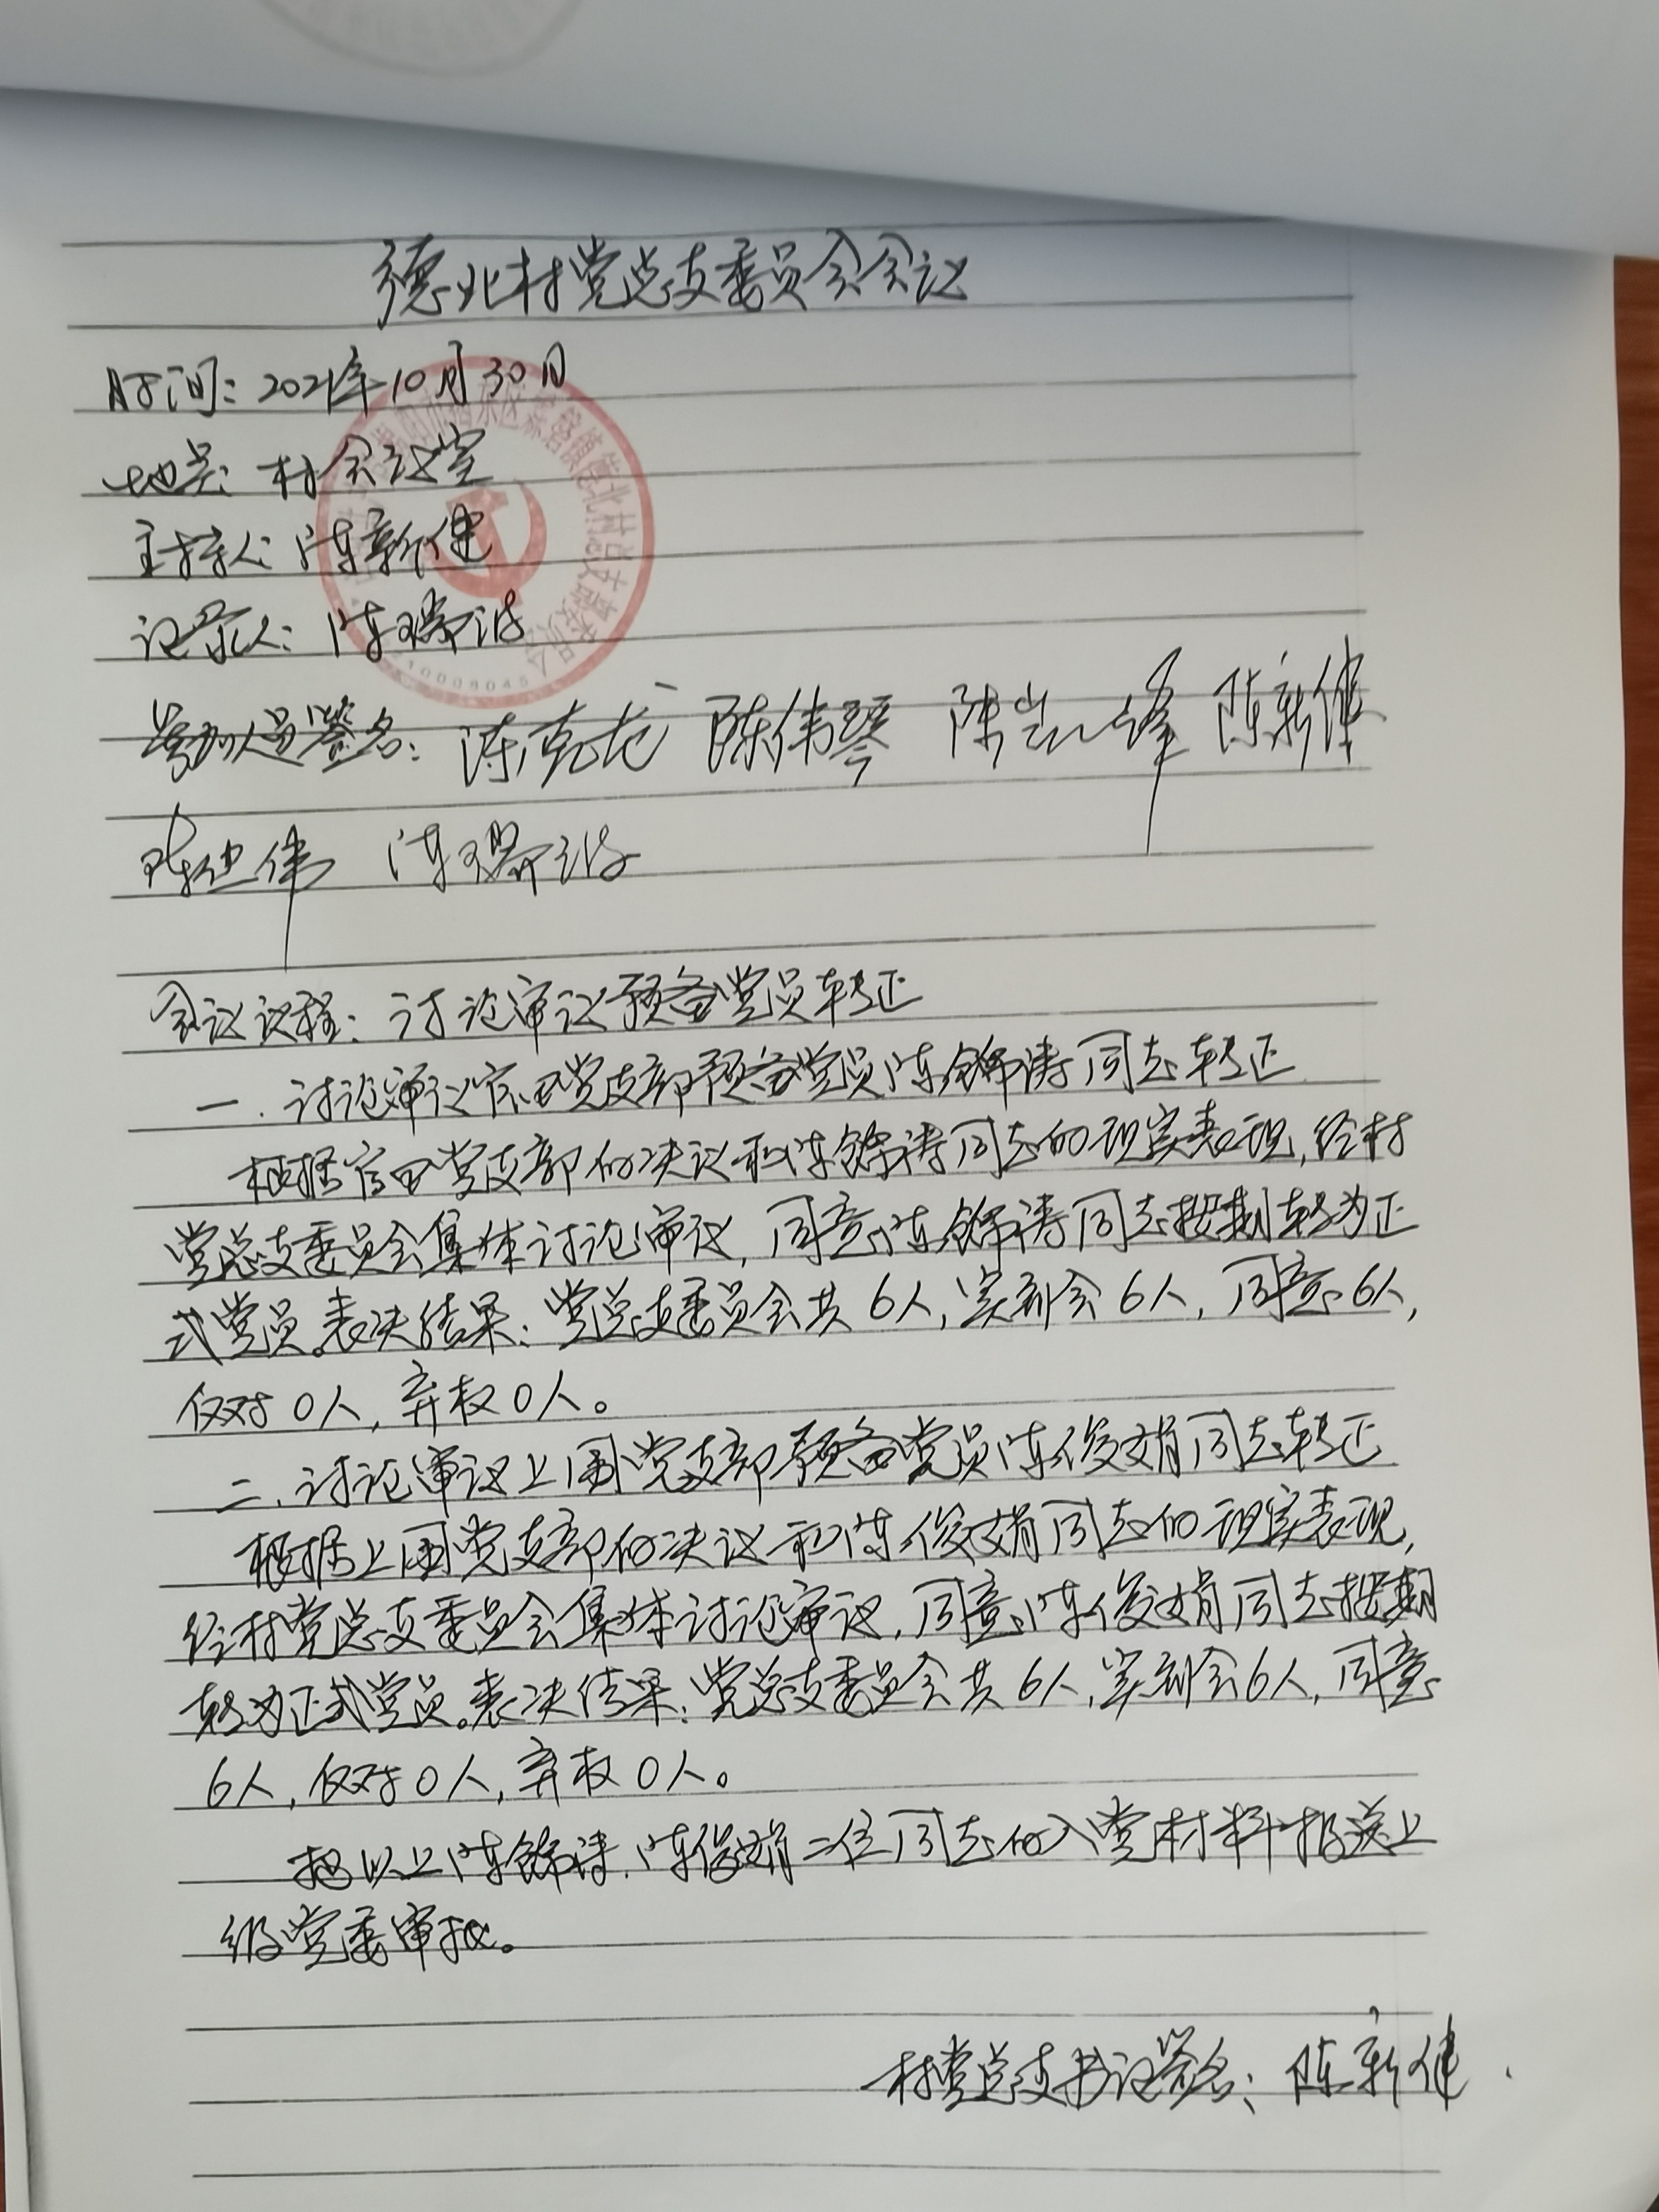 德北村党总支委员会会议
时间：2021年10月30日
地点：村会议室
主持人：陈新健
记录人：陈瑞波
参加人员签名：陈克龙 陈伟琴 陈岂锋 陈新健
陈建伟 陈瑞波
会议议程：讨论审议预备党员转正
一.讨论审议官田党支部预备党员陈锦涛同志转正
根据官田党支部的决议和陈锦涛同志的现实表现,经村
党总支委员会集体讨论审议,同意陈锦涛同志按期转为正
式党员。表决结果：党总支委员会共6人,实到会6人,同意6人,
反对0人,弃权0人。
二.讨论审议上围党支部预备党员陈俊娟同志转正
根据上围党支部的决议和陈俊娟同志的现实表现,
经村党总支委员会集体讨论审议,同意陈俊娟同志按期
转为正式党员。表决结果：党总支委员会共6人,实到会6人,同意
6人,反对0人,弃权0人。
把以上陈锦涛.陈俊娟二位同志的入党材料报送上
级党委审批。
村党总支书记签名：陈新健.